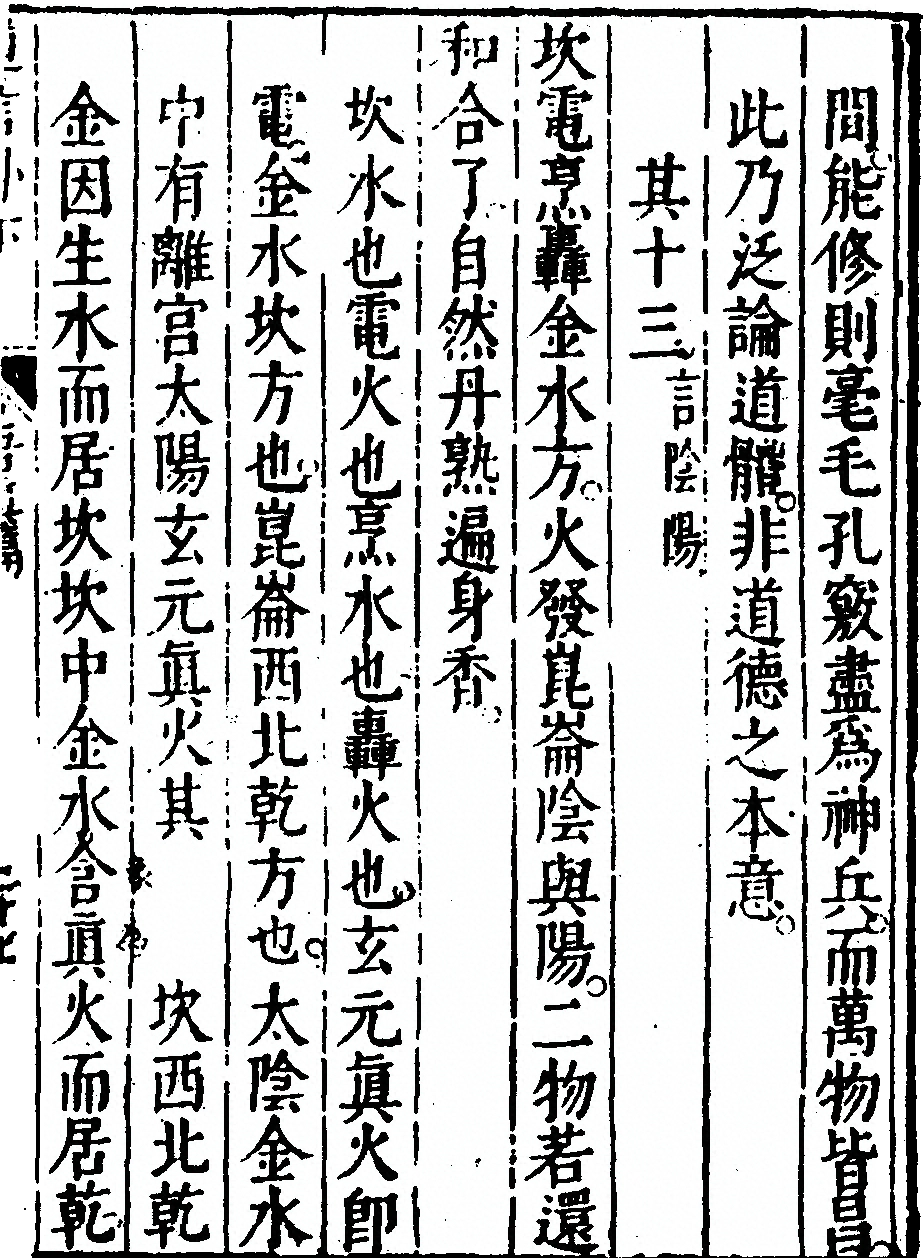 間能修則毫毛孔竅盡爲神兵而萬物皆昌
此乃泛論道體非道德之本意
其十三言陰陽
坎電烹轟金水方火發崑崙陰與陽二物若還
和合了自然丹熟遍身香
坎水也電火也烹水也轟火也玄元眞火卽
電金水坎方也崑崙西北乾方也太陰金水
中有離宮太陽玄元眞火其 坎西北乾
金因生水而居坎坎中金水含眞火而居乾